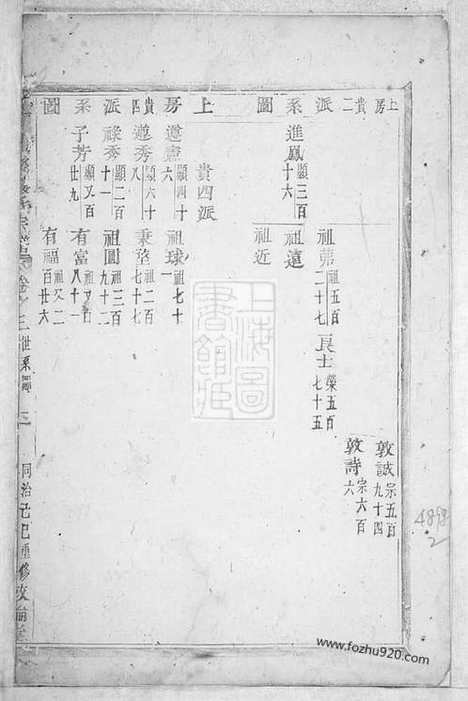 上房貴二派系圖
進鳳 顯三百十六
祖遠
祖近
祖蕘 祖五百二十七
良士 榮五百七十五
敦誠 宗五百九十四
敦詩 宗六百六
上房貴四派系圖
貴四派
遵憲 顯四十六
祖球 祖七十一
遵秀 顯六十八
秉 祖二百七十七
祿秀 顯二百十一
祖圓 祖三百九十二
子芳 顯又百廿九
有富 祖又百八十一
有福 祖又二百廿六
宗譜 卷之二 世系圖 三 同治己巳重修 敦倫堂
上海圖書館藏
4898
2
www.fozhu920.com